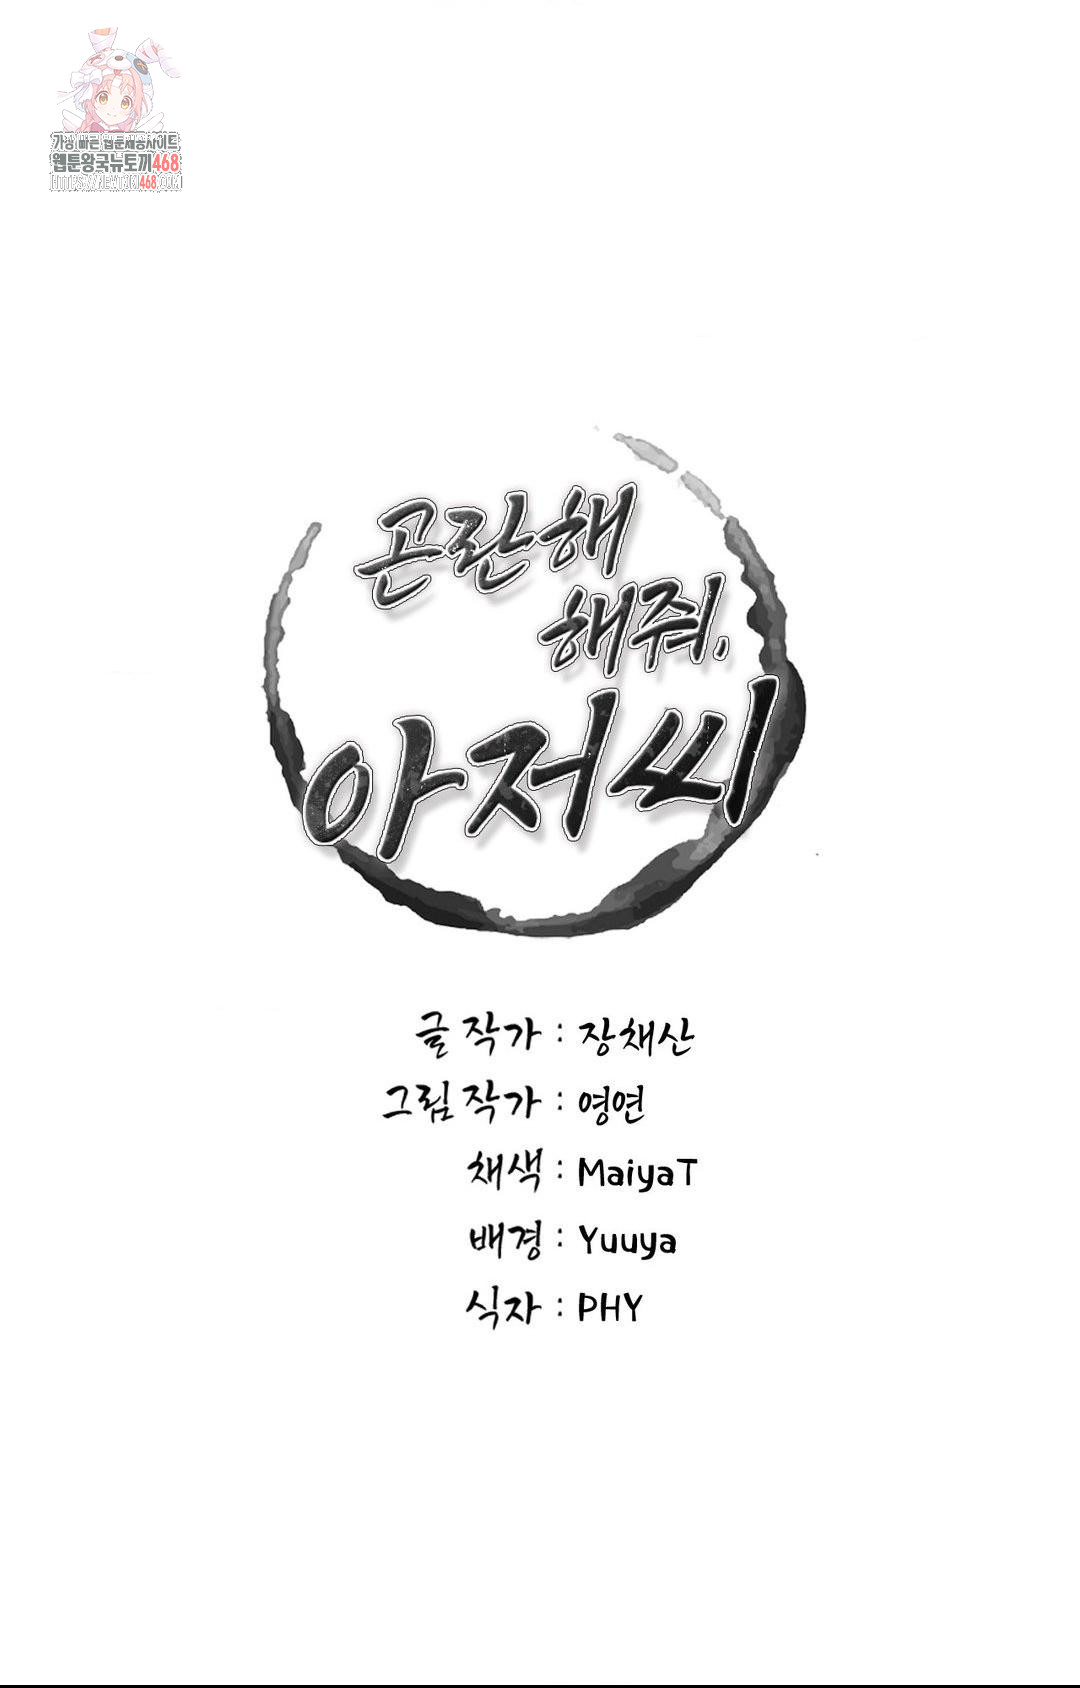 가장 빠른 웹툰제공사이트
웹툰왕국뉴토끼468
HTTPS://NEWTOKI468.COM
곤란해
해줘,
아저씨
글 작가 : 장채산
그림 작가 : 영연
채색 : MaiyaT
배경 : Yuuya
식자 : PHY